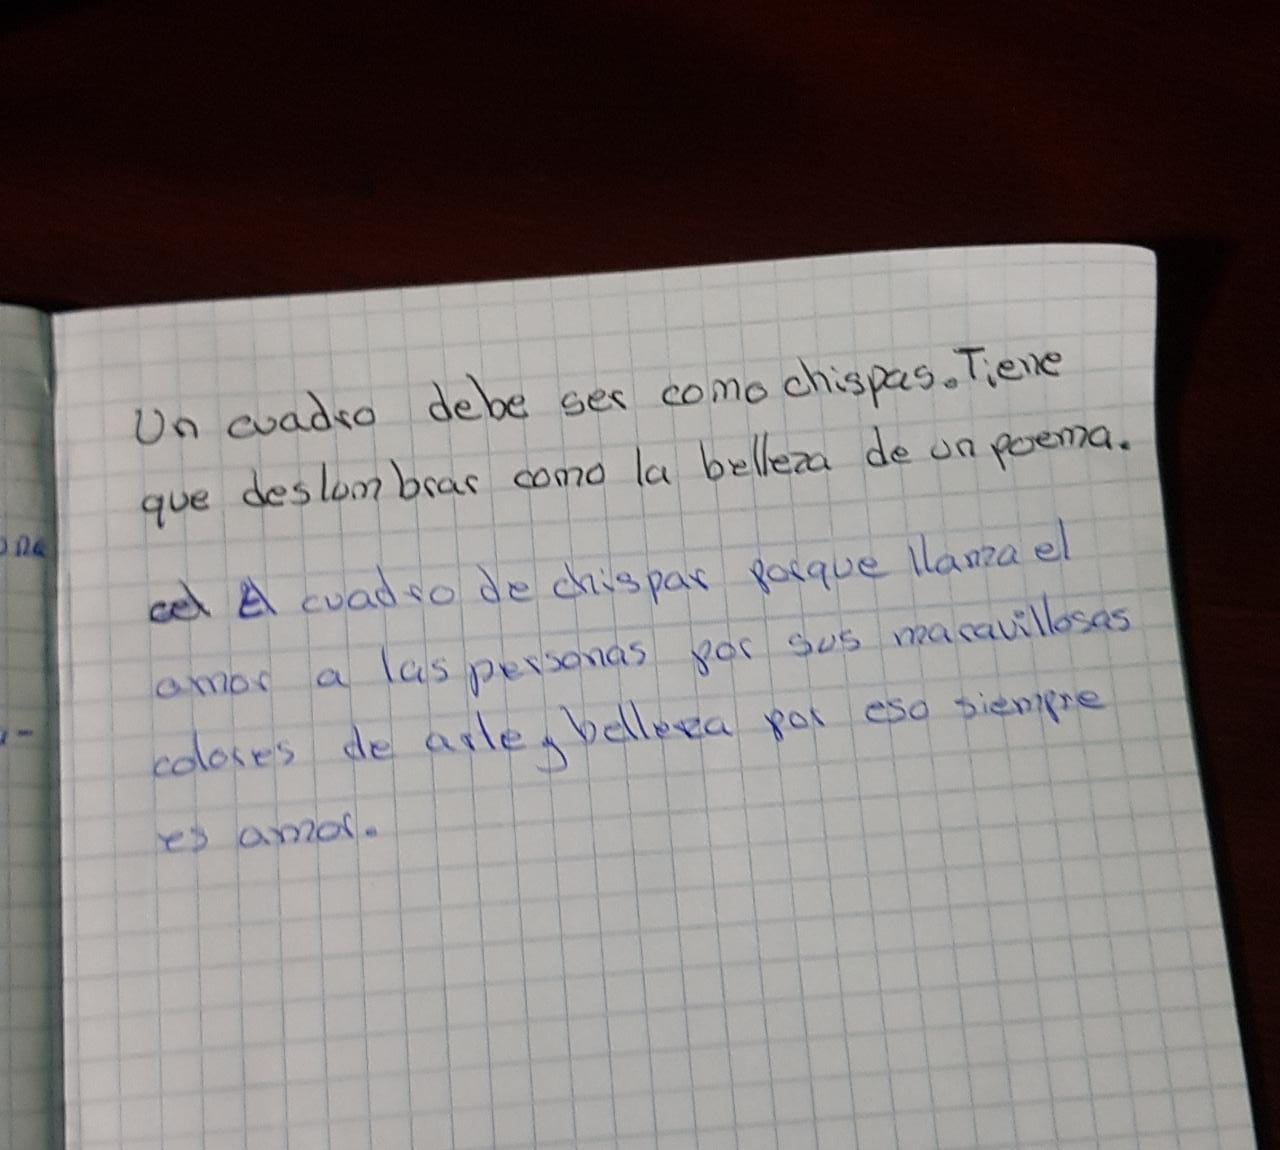 Un cuadro debe ser como chispas. Tiene
que deslumbrar como la belleza de un poema.
cuadro de chispar porque llanza el
amor a las personas por sus maravillosas
colores de arte y belleza por eso siempre
es amor.